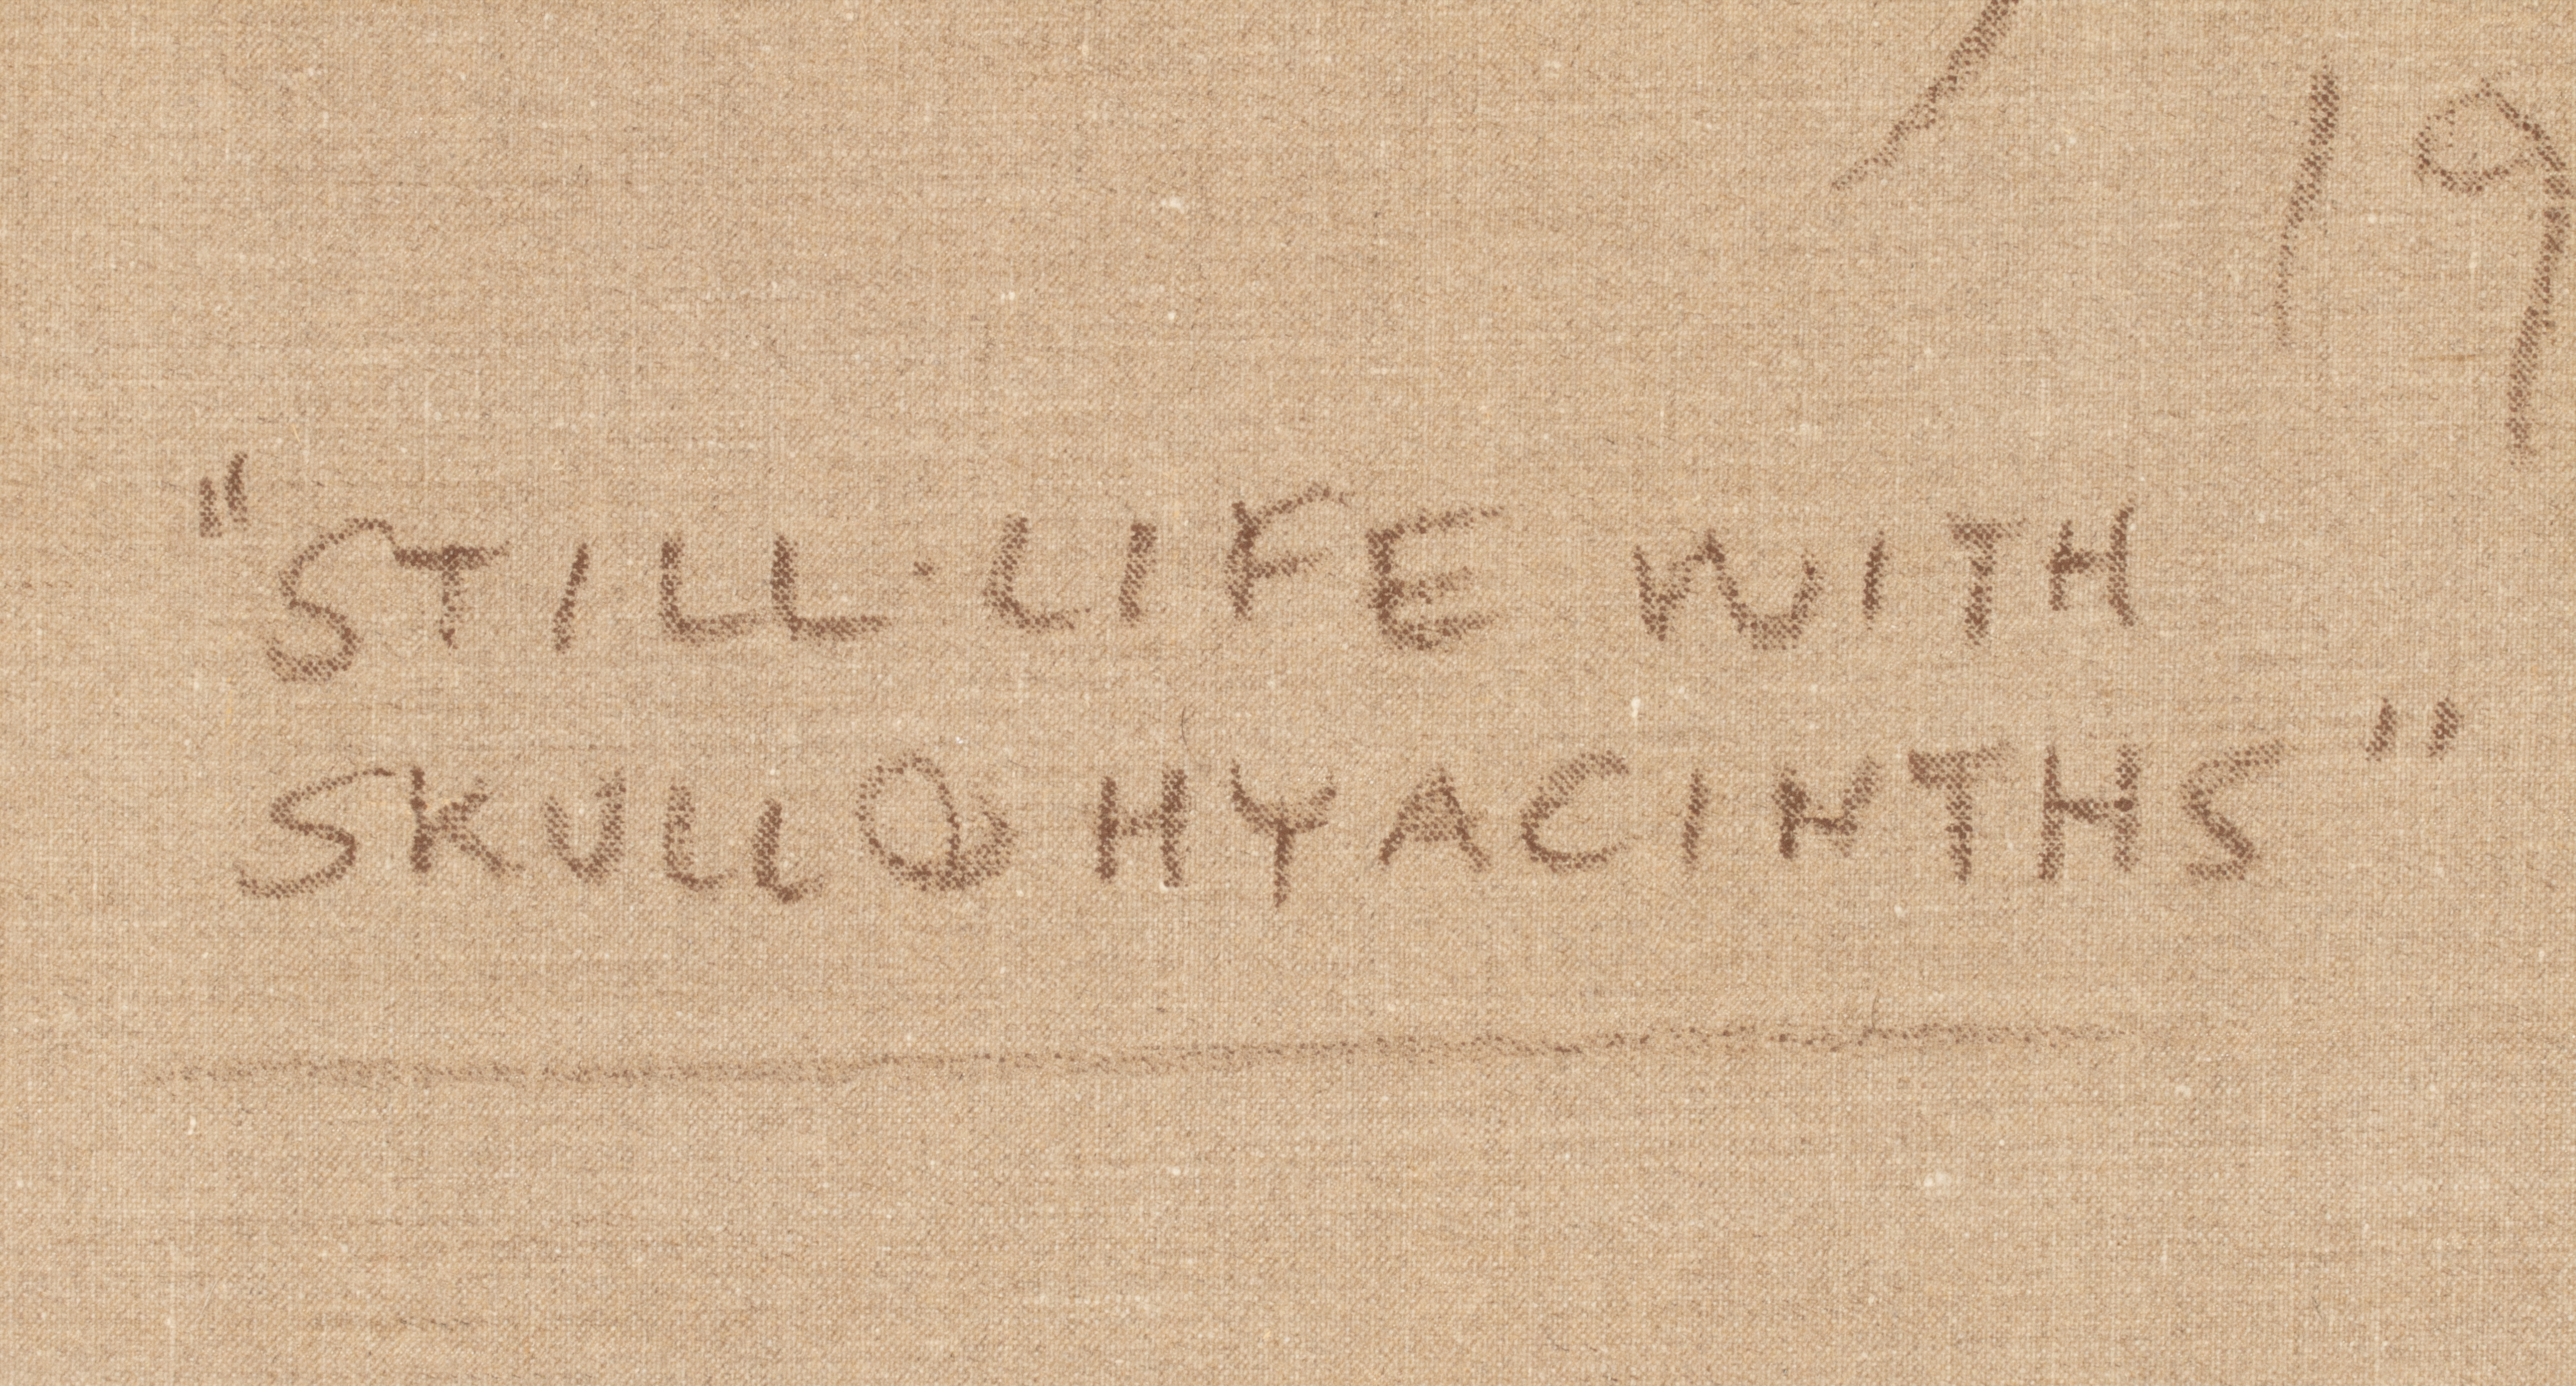 19
"STILL·LIFE WITH
SKULL & HYACINTHS"